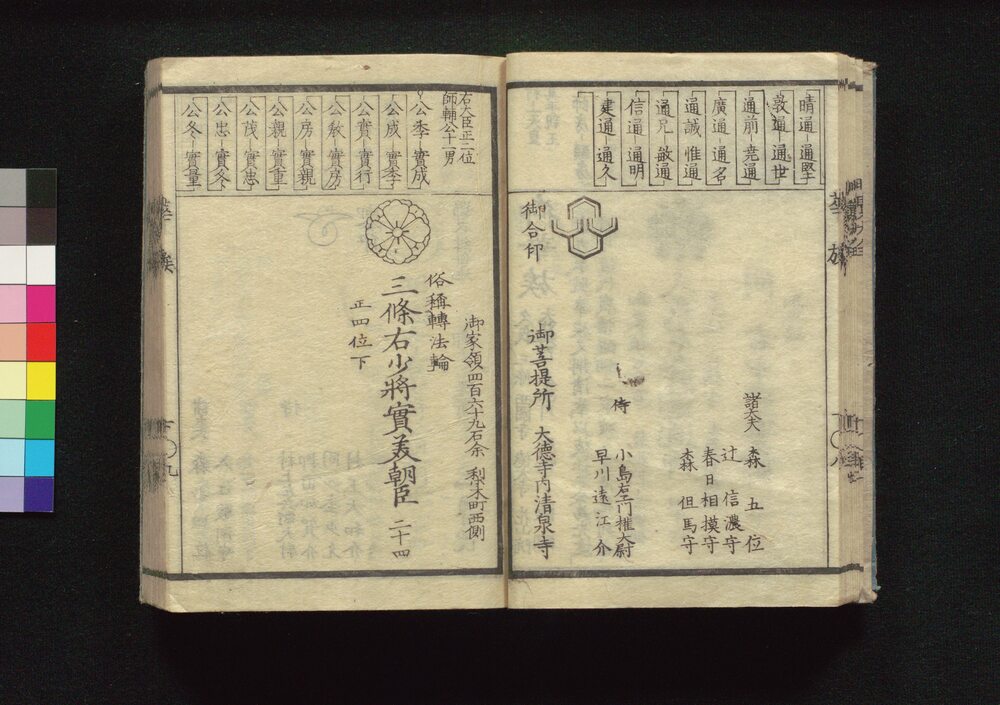 晴通 通堅
敦通 通世
通前 尭通
廣通 通名
通誠 惟通
通兄 敏通
信通 通明
建通 通久
御合印
諸大夫 森 五位
辻 信濃守
春日相摸守
森 但馬守
侍
小島右衛門権大尉
早川遠江介
御菩提所 大徳寺内清泉寺
右大臣正二位
師輔公十一男
公季 實成
公成 實季
公實 實行
公教 實房
公房 實親
公親 實重
公茂 實忠
公忠 實冬
公冬 實量
御家領四百六十九石余 梨木町西側
俗稱轉法輪
三條右少將實美朝臣 二十四
正四位下
九